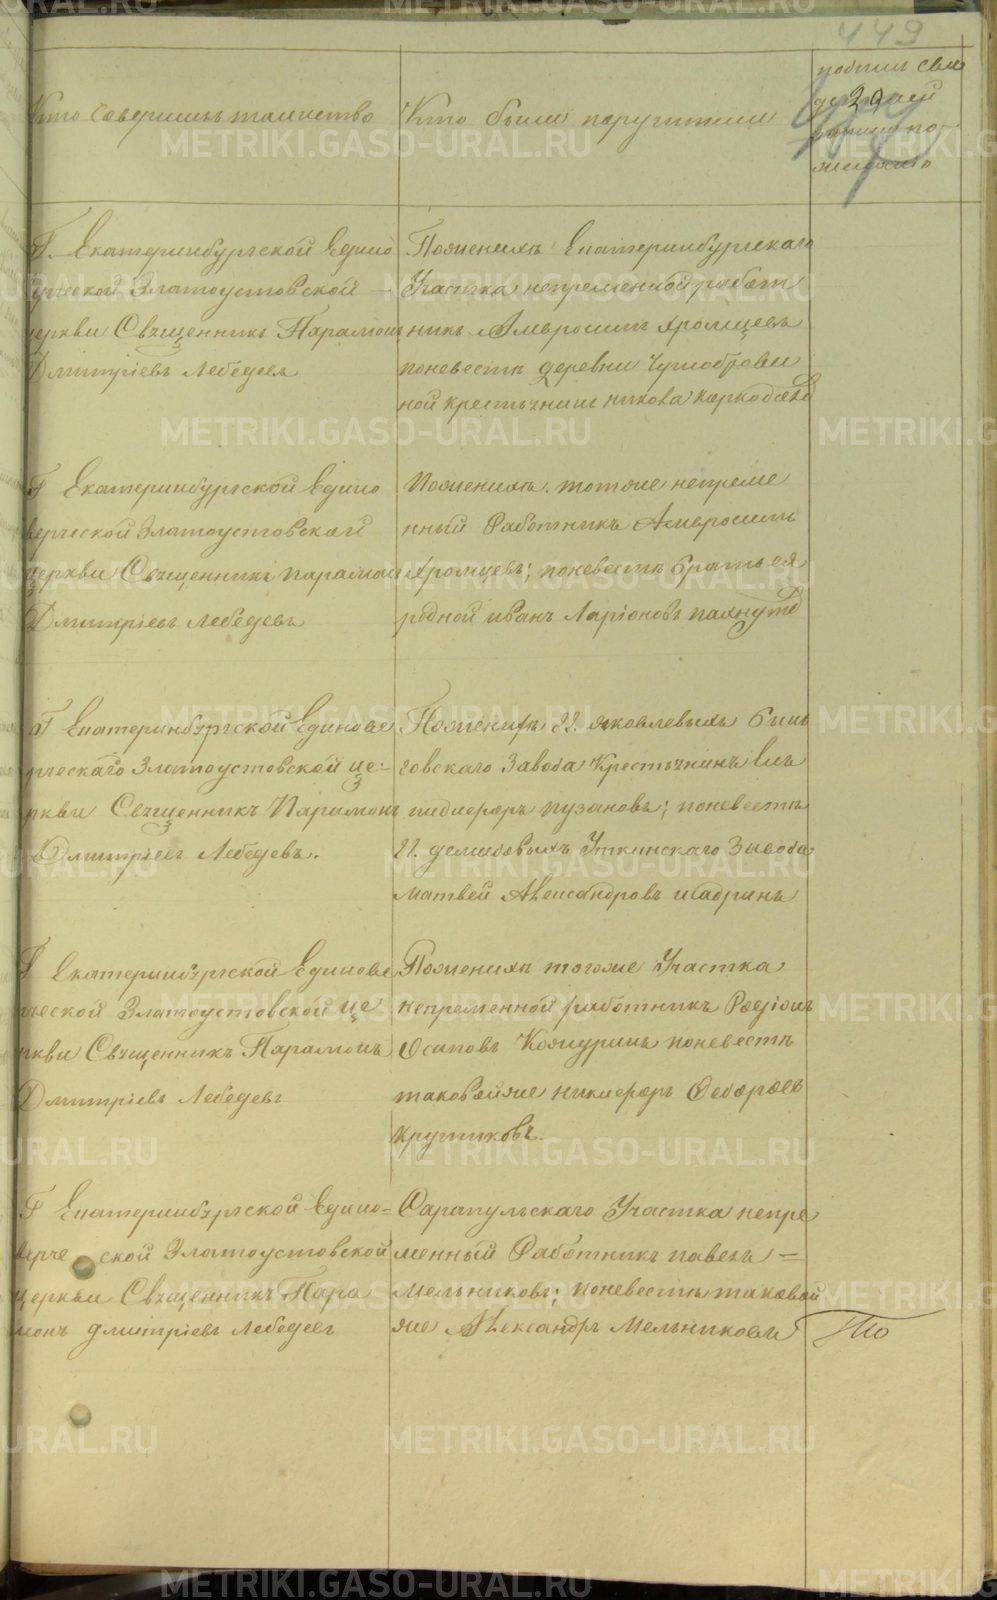 449
Кто совершилъ таинство
Кто были поручители
подпись сви
дѣтелей
записи по
желанію
Г. Екатеринбургской Едино
рческой Златоустовской —
церкви Священникъ Парамонъ
Дмитріевъ Лебедевъ
Поженихѣ Екатеринбургскаго
Участка непременной работ
никъ Амвросимъ Хромцевъ
поневестѣ деревни Чернобровки
ной крестьянинъ
Г Екатеринбургской Едино
верческой Златоустовской
церкви Священникъ Парамонъ
Дмитріевъ Лебедевъ
Поженихѣ. тотже непреме
нный Работникъ Амвросимъ
Хромцевъ; поневестѣ братъ ея
родной иванъ Ларіоновъ
Г Екатеринбургской Единове
рческаго Златоустовской це-
ркви Священникъ Парамонъ
Дмитріевъ Лебедевъ.
Поженихѣ гг. яковлевыхъ
говскаго Завода Крестьянинъ
пидиферъ пузановъ; поневестѣ
гг. демидовыхъ Уткинскаго Завода
матвей Александровъ шадринъ
Г Екатеринбургской Единове
рческой Златоустовской це
ркви Священникъ Парамонъ
Дмитріевъ Лебедевъ
Поженихѣ тогоже Участка
непременной работникъ Родіонъ
Осиповъ Кожуринъ поневестѣ
таковойже никиферъ Федоровъ
крутиковъ.
Г Екатеринбургской Едино=
верче ской Златоустовской
церкви Священникъ Пара
монъ дмитріевъ Лебедевъ
Сарапульскаго Участка непре
менный Работникъ павелъ =
мельниковъ; поневестѣ таковой
же Александръ Мельниковъ
METRIKI.GASO-URAL.RU